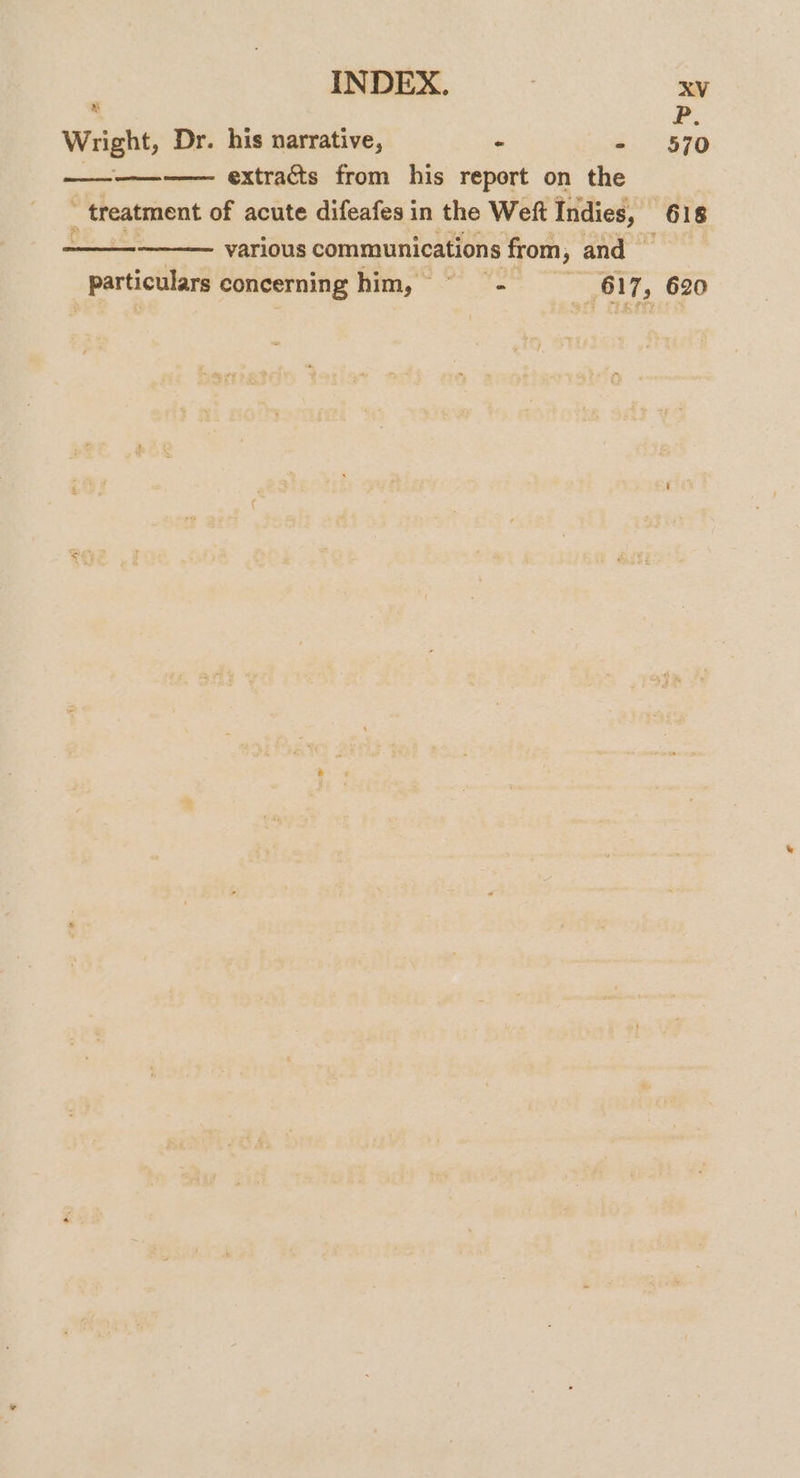 INDEX. xv
P.
Wright, Dr. his narrative, - - 570
——————— extracts from his report on the
treatment of acute difeafes in the Weft Indies, 618
——————— various communications from, and
particulars concerning him, - 617, 620